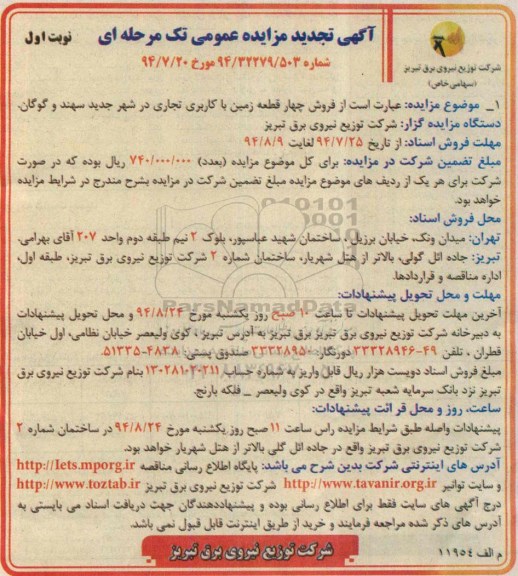 آگهی تجدید مزایده عمومی تک مرحله ای
نوبت اول
شماره ۹۴/۳۲۲۷۹/۵۰۳ مورخ ۹۴/۷/۲۰
شرکت توزیع نیروی برق تبریز
(سهامی خاص)
۱_ موضوع مزایده: عبارت است از فروش چهار قطعه زمین با کاربری تجاری در شهر جدید سهند و گوگان.
دستگاه مزایده گزار: شرکت توزیع نیروی برق تبریز
مهلت فروش اسناد: از تاریخ ۹۴/۷/۲۵ لغایت ۹۴/۸/۹
مبلغ تضمین شرکت در مزایده: برای کل موضوع مزایده (بعدد) ۷۴۰/۰۰۰/۰۰۰ ریال بوده که در صورت
شرکت برای هر یک از ردیف های موضوع مزایده مبلغ تضمین شرکت در مزایده بشرح مندرج در شرایط مزایده
خواهد بود.
محل فروش اسناد:
تهران: میدان ونک، خیابان برزیل ، ساختمان شهید عباسپور، بلوک ۲ نیم طبقه دوم واحد ۲۰۷ آقای بهرامی.
تبریز: جاده ائل گولی، بالاتر از هتل شهریار، ساختمان شماره ۲ شرکت توزیع نیروی برق تبریز، طبقه اول،
اداره مناقصه و قراردادها.
مهلت و محل تحویل پیشنهادات:
آخرین مهلت تحویل پیشنهادات تا ساعت ۱۰ صبح روز یکشنبه مورخ ۹۴/۸/۲۴ و محل تحویل پیشنهادات
به دبیرخانه شرکت توزیع نیروی برق تبریز به آدرس تبریز، کوی ولیعصر خیابان نظامی، اول خیابان
قطران ، تلفن ۴۹-۳۳۳۲۸۹۴۶ دورنگار: ۳۳۳۲۸۹۵۰ صندوق پستی: ۴۸۳۸-۵۱۳۳۵
مبلغ فروش اسناد دویست هزار ریال قابل واریز به شماره حساب ۱۳۰۲۸۱۰۲۰۲۱۱ بنام شرکت توزیع نیروی برق
تبریز نزد بانک سرمایه شعبه تبریز واقع در کوی ولیعصر _ فلکه بارنج.
ساعت، روز و محل قرائت پیشنهادات:
پیشنهادات واصله طبق شرایط مزایده راس ساعت ۱۱ صبح روز یکشنبه مورخ ۹۴/۸/۲۴ در ساختمان شماره ۲
شرکت توزیع نیروی برق تبریز واقع در جاده ائل گلی بالاتر از هتل شهریار خواهد بود.
آدرس های اینترنتی شرکت بدین شرح می باشد: پایگاه اطلاع رسانی مناقصه http://Iets.mporg.ir
و سایت توانیر http://www.tavanir.org.ir شرکت توزیع نیروی برق تبریز http://www.toztab.ir
درج آگهی های سایت فقط برای اطلاع رسانی بوده و پیشنهاددهندگان جهت دریافت اسناد می بایستی به
آدرس های ذکر شده مراجعه فرمایند و خرید از طریق اینترنت قابل قبول نمی باشد.
م الف ۱۱۹۵۴
شرکت توزیع نیروی برق تبریز